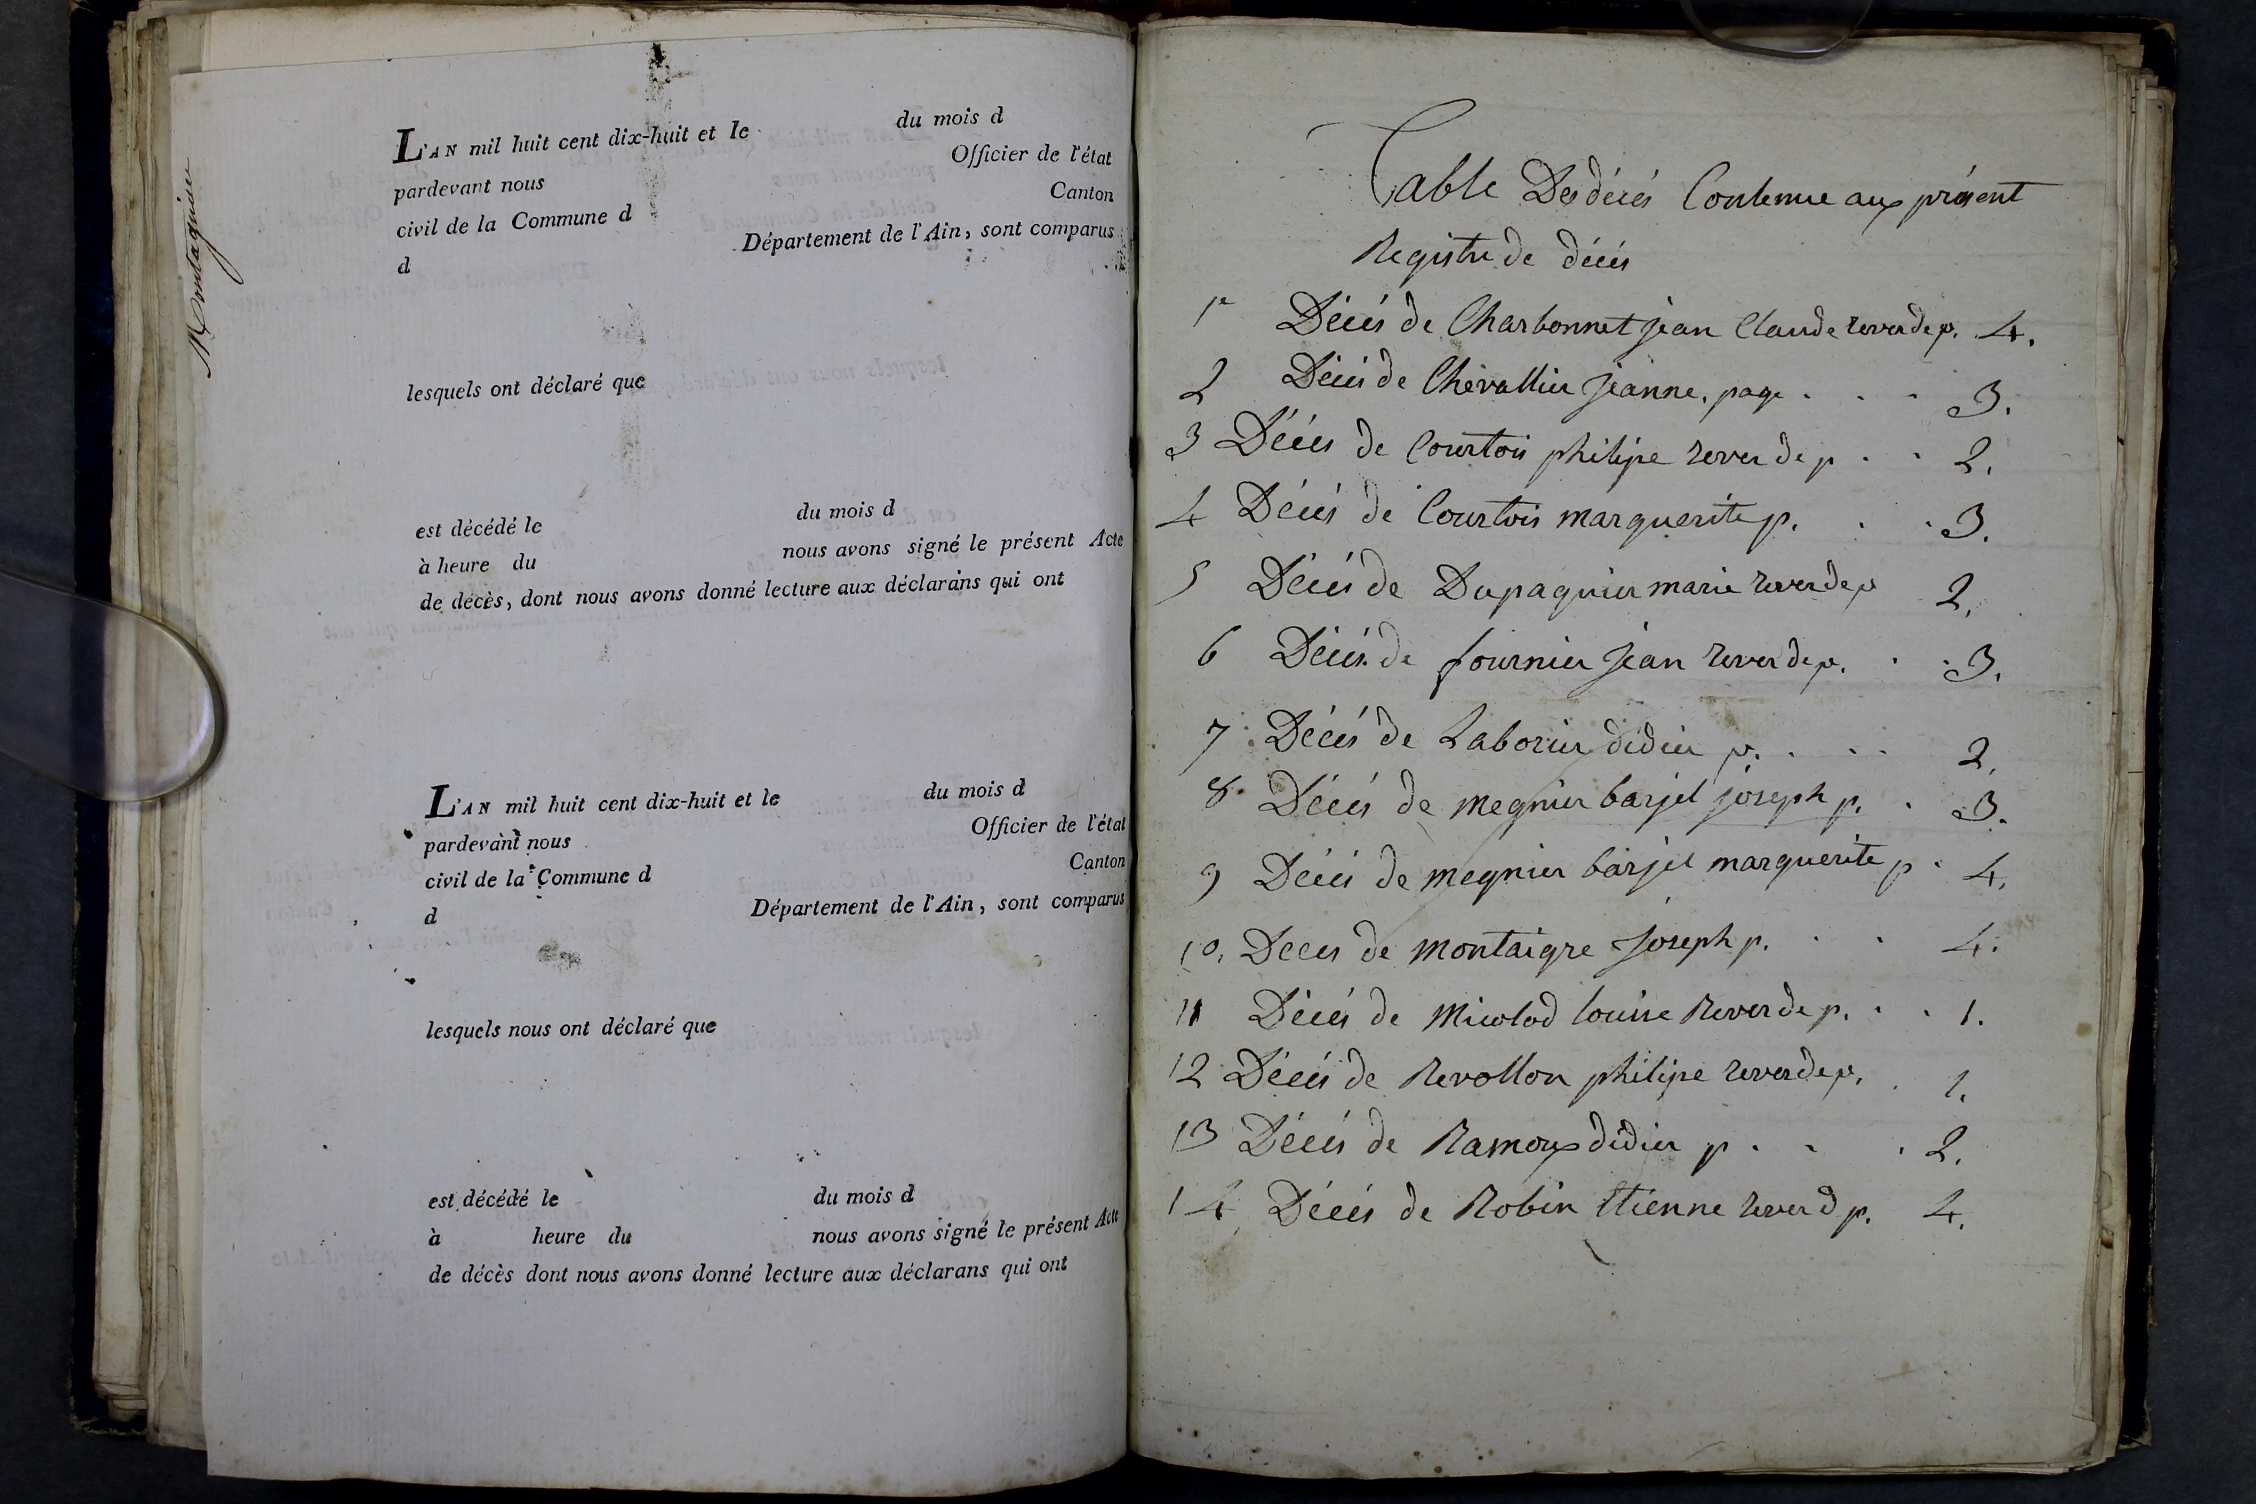 Montagnieu
L'AN mil huit cent dix-huit et le du mois d
pardevant nous Officier de l'état
civil de la Commune d Canton
d Département de l'Ain, sont comparus
lesquels ont déclaré que
est décédé le du mois d
à heure du nous avons signé le présent Acte
de décès, dont nous avons donné lecture aux déclarans qui ont
L'AN mil huit cent dix-huit et le du mois d
pardevant nous Officier de l'état
civil de la Commune d Canton
d Département de l'Ain, sont comparus
lesquels nous ont déclaré que
est décédé le du mois d
à heure du nous avons signé le présent Acte
de décès dont nous avons donné lecture aux déclarans qui ont
Table Des décés Contenue aux présent
Registre de décés
1er Décés de Charbonnet jean Claude rever de p. 4.
2 Décés de Chevallier jeanne, page . . . 3.
3 Décés de Courtois philipe rever de p . . 2.
4 Décés de Courtois marguerite p. . . 3.
5 Décés de Dupagnier marie rever de p 2.
6 Décés de fournier jean rever de p. . . 3.
7 Décés de Laborier didier p. . . . 2.
8 Décés de megnier barjel joseph p. . 3.
9 Décés de megnier barjel marguerite p . 4.
10. Deces de montaigre joseph p. . . 4.
11 Décés de Micolod louise Rever de p. . . 1.
12 Décés de Revollon philipe rever de p. . 1.
13 Décés de Ramoux didier p . . . 2.
14 Décés de Robin Etienne rever d p. 4.